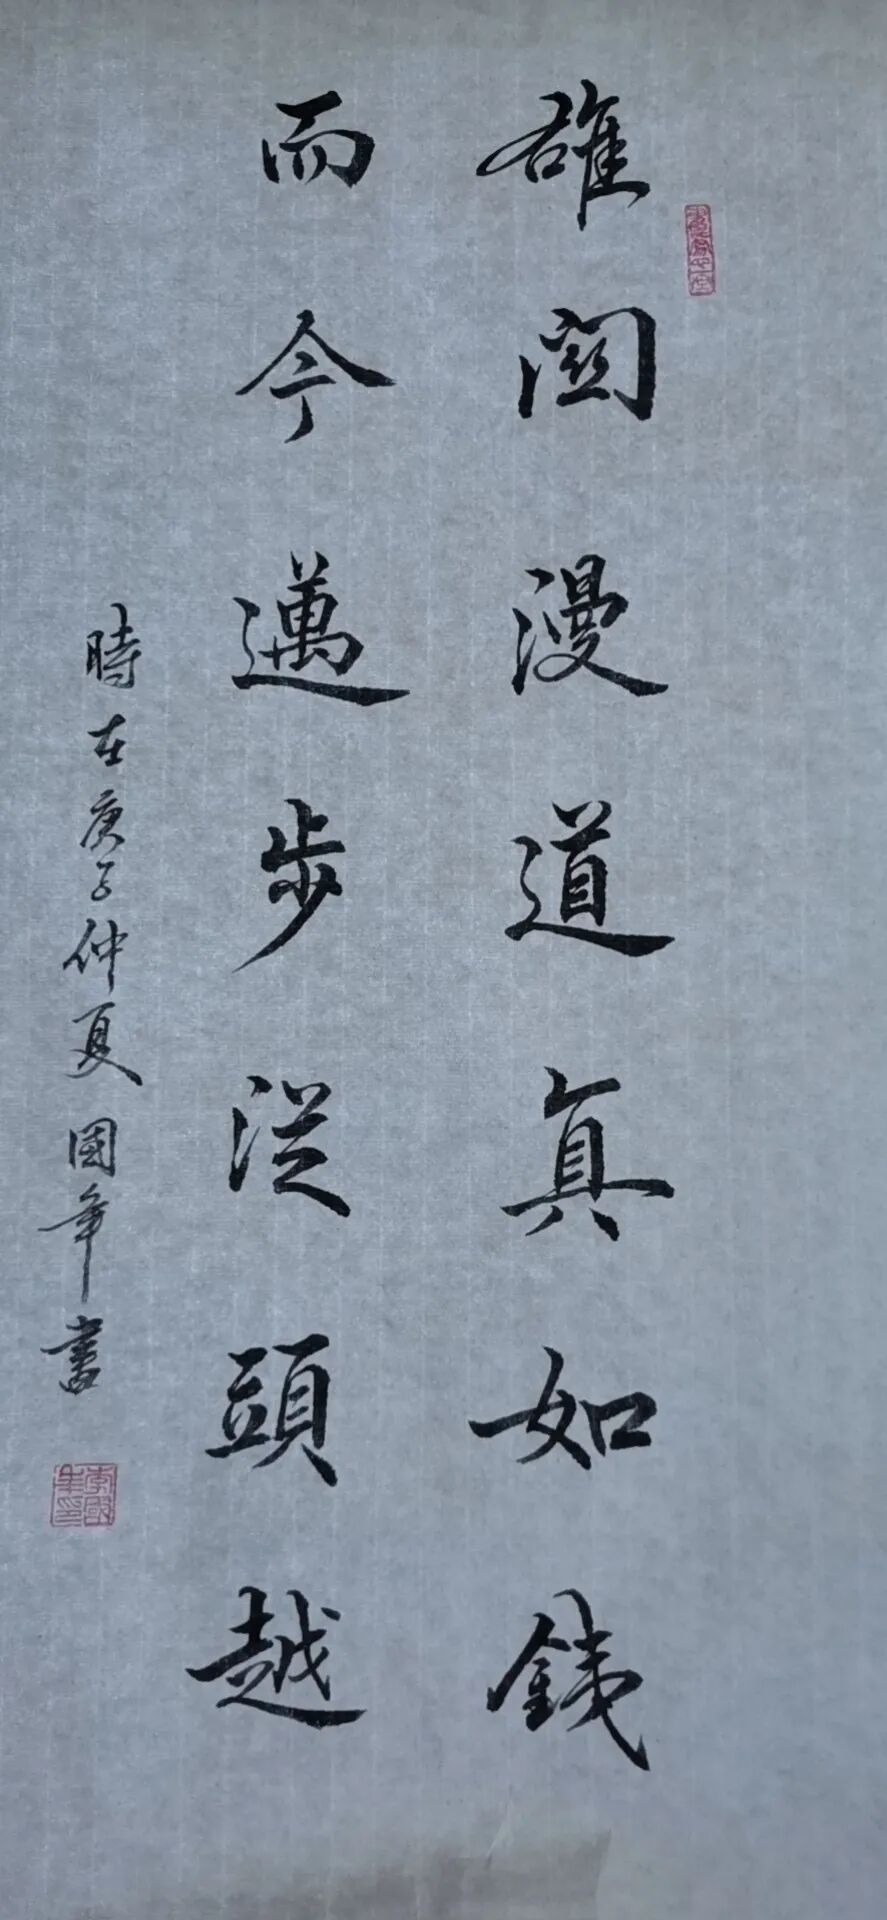 雄關漫道真如鐵
而今邁步從頭越
時在庚子仲夏國年書